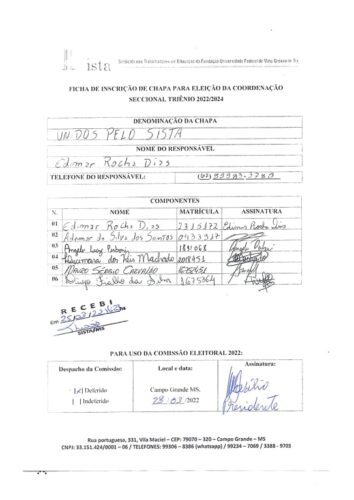 Sindicato dos Trabalhadores em Educação da Fundação Universidade Federal de Mato Grosso do Sul
ista
FICHA DE INSCRIÇÃO DE CHAPA PARA ELEIÇÃO DA COORDENAÇÃO
SECCIONAL TRIÊNIO 2022/2024
DENOMINAÇÃO DA CHAPA
UNIDOS PELO SISTA
NOME DO RESPONSÁVEL
Edimar Rocha Dias
TELEFONE DO RESPONSÁVEL: (67)
COMPONENTES
N. NOME MATRÍCULA ASSINATURA
01 Edimar Rocha Dias 2315172 Edimar Rocha Dias
02 Ademar da Silva dos Santos 0433917
03 Angelo Luiz
04 dos Reis Machado 2018451
05 MAURO SÉRGIO CARVALHO
06 Fialho da Silva 1675364
RECEBI
EM 25/02/22
SISTA/MS
PARA USO DA COMISSÃO ELEITORAL 2022:
Despacho da Comissão: Local e data: Assinatura:
[x] Deferido Campo Grande MS,
[ ] Indeferido 28/03/2022 Presidente
Rua portuguesa, 331, Vila Maciel – CEP: 79070 – 320 – Campo Grande – MS
CNPJ: 33.151.424/0001 – 06 / TELEFONES: 99306 – 8386 (whatsapp) / 99234 – 7069 / 3388 - 9703